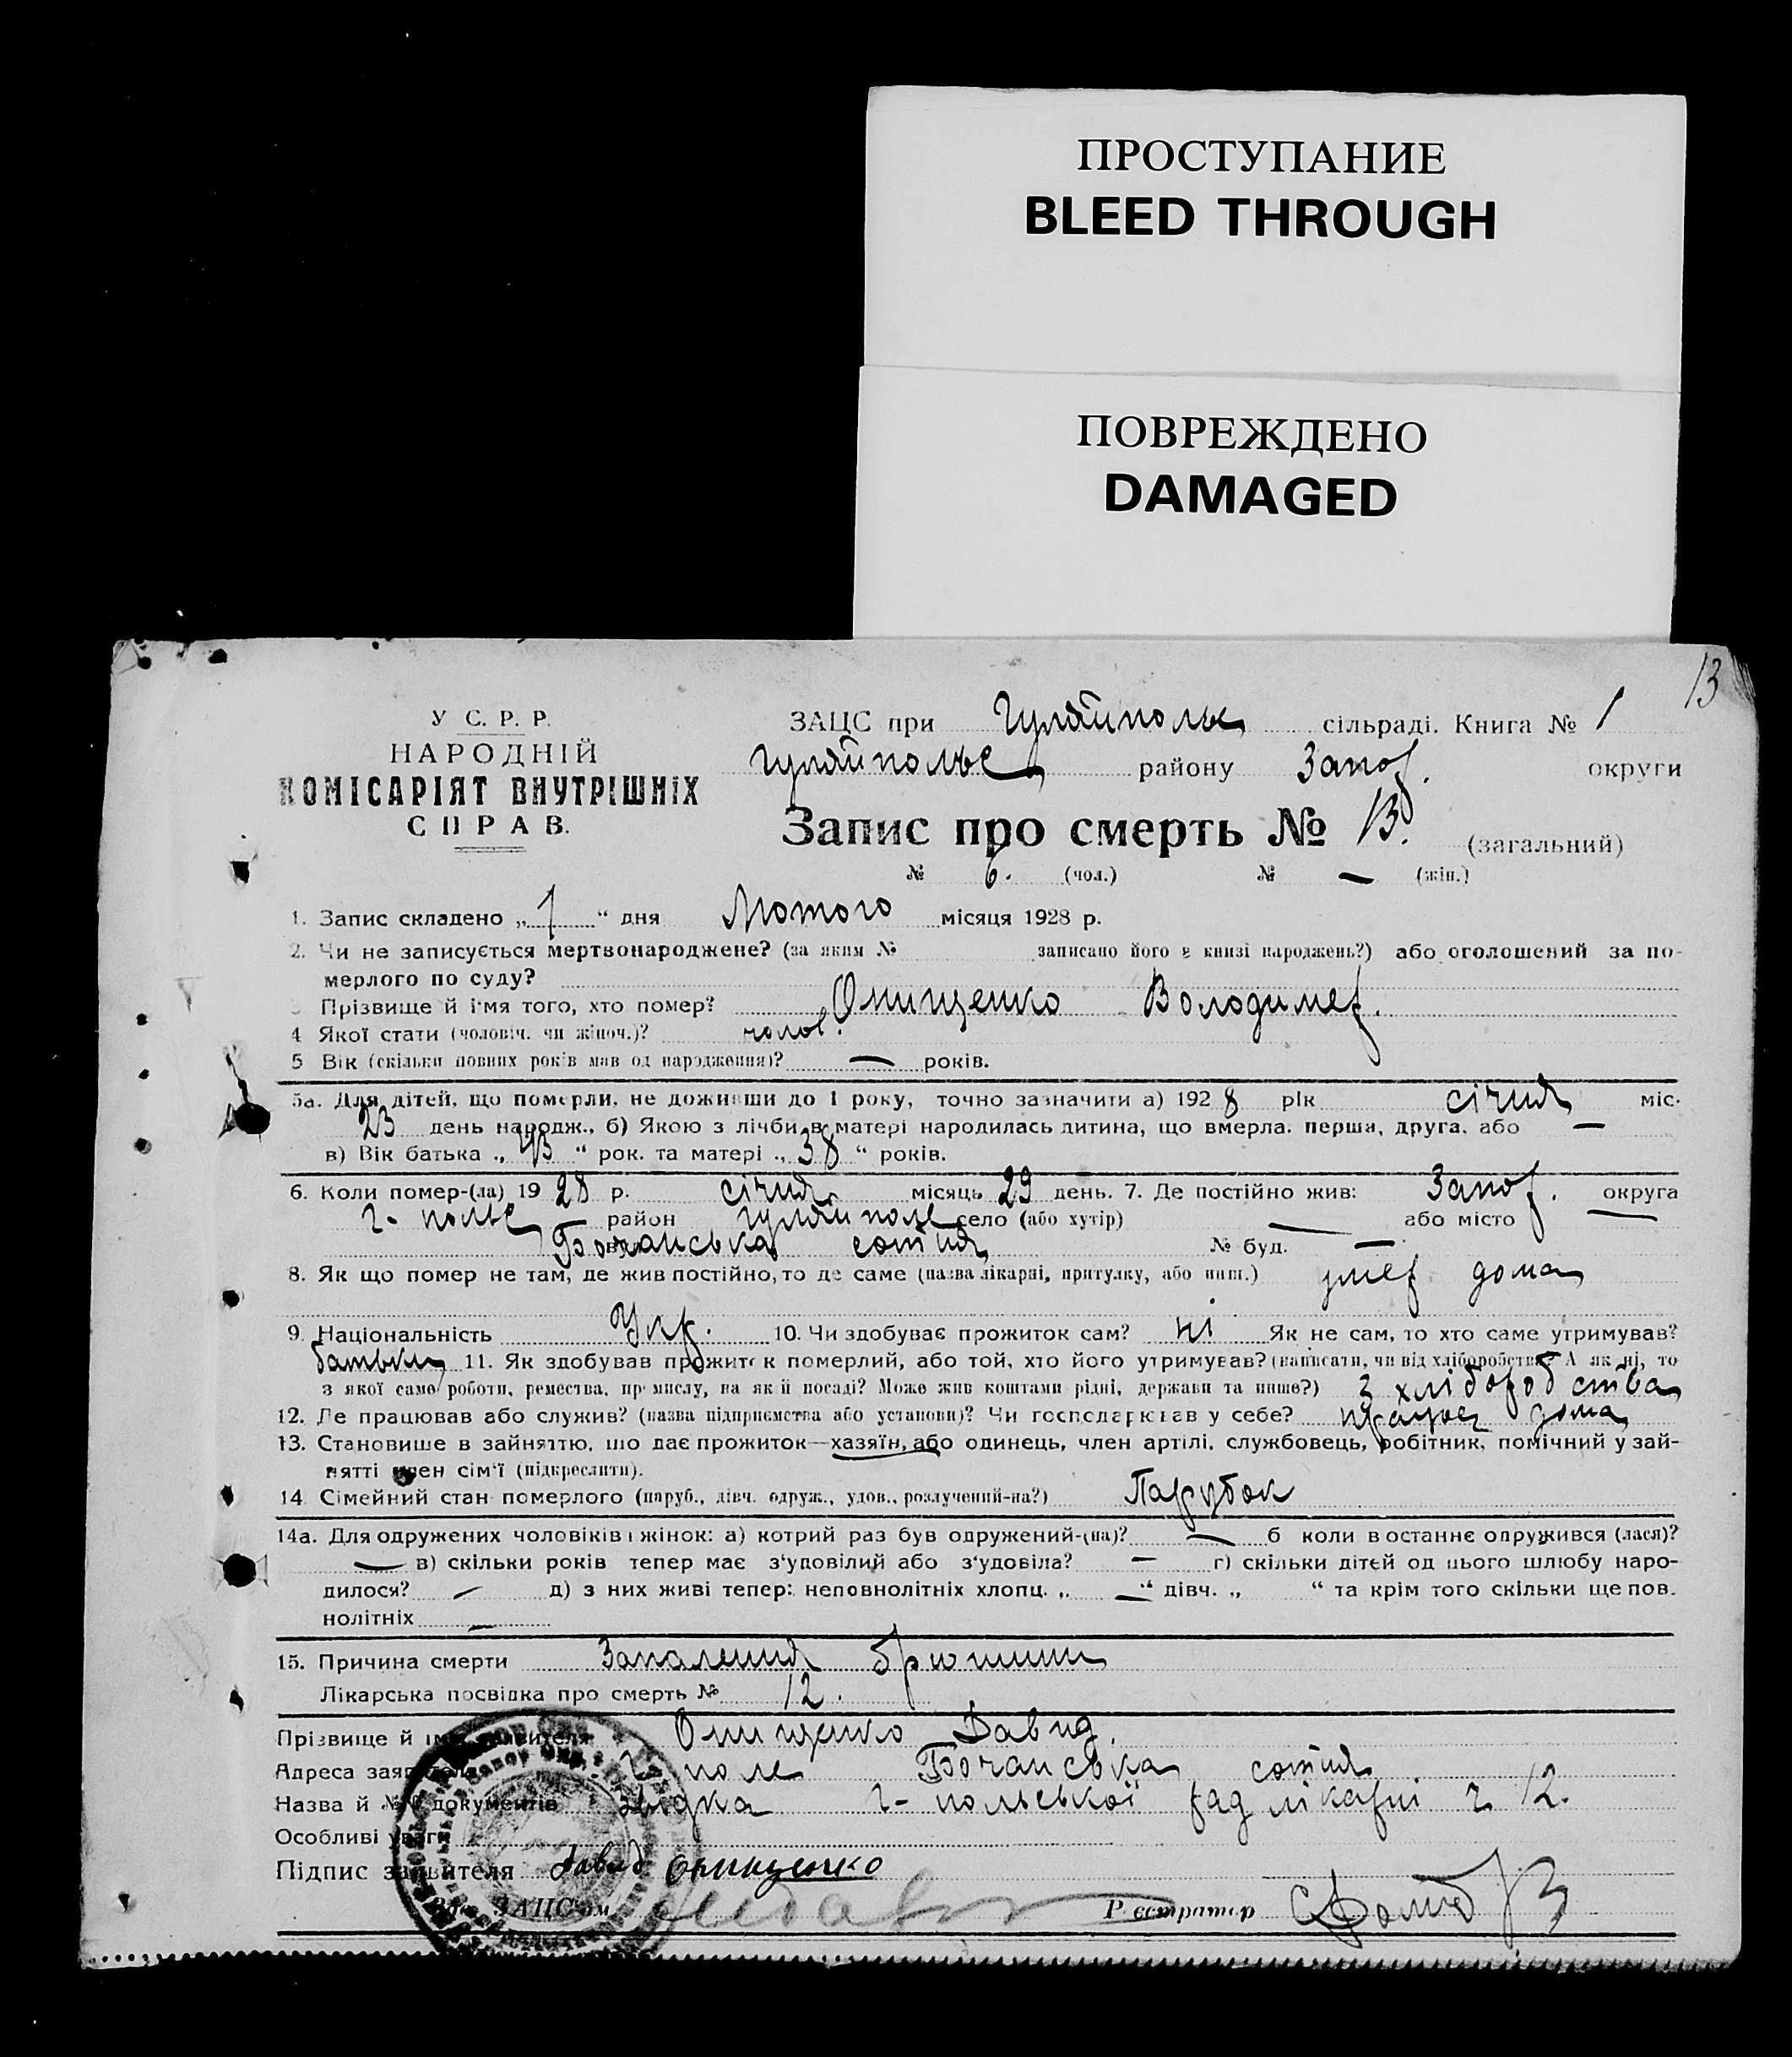 ПРОСТУПАНИЕ
BLEED THROUGH
ПОВРЕЖДЕНО
DAMAGED
13
У С. Р. Р.
НАРОДНІЙ
КОМІСАРІЯТ ВНУТРІШНІХ
СПРАВ.
ЗАЦС при Гуляйполье сільраді. Книга № 1
Гуляйполье району Запор. округи
Запис про смерть № 13. (загальний)
№ 6. (чол.) № — (жін.)
1. Запис складено „ 1 “ дня Лютого місяця 1928 р.
2. Чи не записується мертвонароджене? (за яким № записано його в книзі народжень?) або оголошений за по-
мерлого по суду?
Прізвище й імя того, хто помер? Онищенко Володимер.
4 Якої стати (чоловіч. чи жіноч.)? чолов.
5 Вік (скільки повних років мав од народження)? — років.
5а. Для дітей, що померли, не доживши до 1 року, точно зазначити а) 192 8 рік січня міс.
23 день народж., б) Якою з лічби в матері народилась дитина, що вмерла: перша, друга, або —
в) Вік батька „ 43 “ рок. та матері „ 38 “ років.
6. Коли помер-(ла) 19 28 р. січня місяць 29 день. 7. Де постійно жив: Запор. округа
г-полье район Гуляйполе село (або хутір) — або місто —
Бочанська сотня № буд. —
8. Як що помер не там, де жив постійно, то де саме (назва лікарні, притулку, або инш.) умер дома
9. Національність Укр. 10. Чи здобуває прожиток сам? ні Як не сам, то хто саме утримував?
батьки 11. Як здобував прожиток померлий, або той, хто його утримував? (написати, чи від хліборобства? А як ні, то
з якої саме роботи, ремества, промислу, на якій посаді? Може жив коштами рідні, держави та инше?) з хліборобства
12. Де працював або служив? (назва підприємства або установи)? Чи господарював у себе? працює дома
13. Становище в зайняттю, що дає прожиток—хазяїн, або одинець, член артілі, службовець, робітник, помічний у зай-
нятті член сім'ї (підкреслити).
14. Сімейний стан померлого (паруб., дівч. одруж., удов., розлучений-на?) Парубок
14а. Для одружених чоловіків і жінок: а) котрий раз був одружений-(на)? — б коли в останнє одружився (лася)?
— в) скільки років тепер має з'удовілий або з'удовіла? — г) скільки дітей од цього шлюбу наро-
дилося? — д) з них живі тепер: неповнолітніх хлопц. „ — “ дівч. „ “ та крім того скільки ще пов.
нолітніх —
15. Причина смерти Запалення брюшини
Лікарська посвідка про смерть № 12.
Прізвище й імя заявителя Онищенко Давид.
Адреса заявителя Г-поле Бочанська сотня
Назва й №№ документів г-польської рад лікарні ч 12.
Особливі уваги
Підпис заявителя Давид Онищенко
ЗАЦС'ом Реєстратор